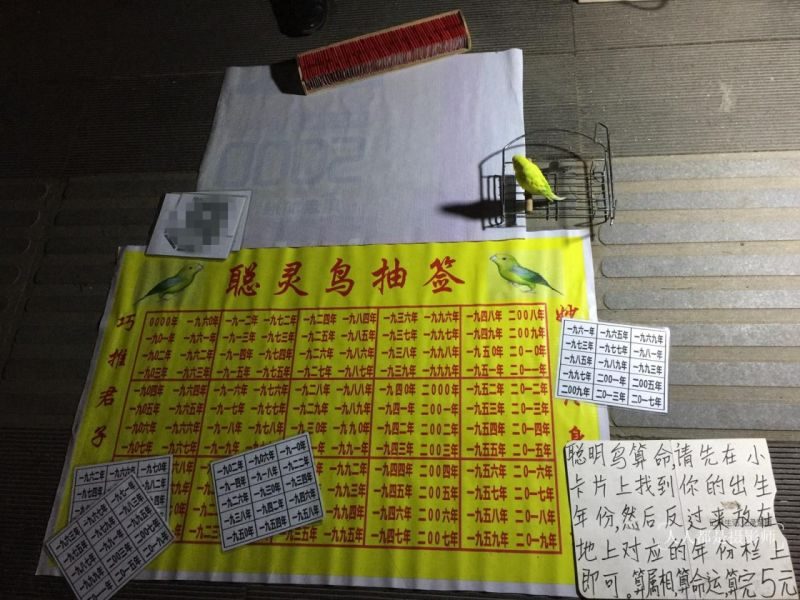 聪灵鸟抽签
巧推君子
妙
身
0000年 一九六0年 一九一二年 一九七二年 一九二四年 一九八四年 一九三六年 一九九六年 一九四八年 二00八年
一九0一年 一九六一年 一九一三年 一九七三年 一九二五年 一九八五年 一九三七年 一九九七年 一九四九年 二00九年
一九0二年 一九六二年 一九一四年 一九七四年 一九二六年 一九八六年 一九三八年 一九九八年 一九五0年 二0一0年
一九0三年 一九六三年 一九一五年 一九七五年 一九二七年 一九八七年 一九三九年 一九九九年 一九五一年 二0一一年
一九0四年 一九六四年 一九一六年 一九七六年 一九二八年 一九八八年 一九四0年 二000年 一九五二年 二0一二年
一九0五年 一九六五年 一九一七年 一九七七年 一九二九年 一九八九年 一九四一年 二00一年 一九五三年 二0一三年
一九0六年 一九六六年 一九一八年 一九七八年 一九三0年 一九九0年 一九四二年 二00二年 一九五四年 二0一四年
一九0七年 一九六七年 一九一九年 一九七九年 一九三一年 一九九一年 一九四三年 二00三年 一九五五年 二0一五年
一九九二年 一九四四年 二00四年 一九五六年 二0一六年
一九九三年 一九四五年 二00五年 一九五七年 二0一七年
一九九四年 一九四六年 二00六年 一九五八年 二0一八年
一九九五年 一九四七年 二00七年 一九五九年 二0一九年
一九六一年 一九六五年 一九六九年
一九七三年 一九七七年 一九八一年
一九八五年 一九八九年 一九九三年
一九九七年 二00一年 二00五年
二00九年 二0一三年 二0一七年
一九0二年 一九0六年 一九一0年
一九一四年 一九一八年 一九二二年
一九二六年 一九三0年 一九三四年
一九三八年 一九四二年 一九四六年
一九五0年 一九五四年 一九五八年
一九六二年 一九六六年 一九七0年
一九七四年
一九六三年 一九六七年 一九七一年
一九七五年 一九七九年 一九八三年
一九八七年 一九九一年 一九九五年
一九九九年 二00三年 二00七年
二0一一年 二0一五年 二0一九年
聪明鸟算命,请先在小
卡片上找到你的出生
年份,然后反过来放在
地上对应的年份栏上
即可。算属相,算命运,算完5元
人人都是摄影师